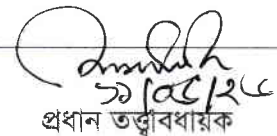 ১১/০৫/২৫
প্রধান তত্ত্বাবধায়ক